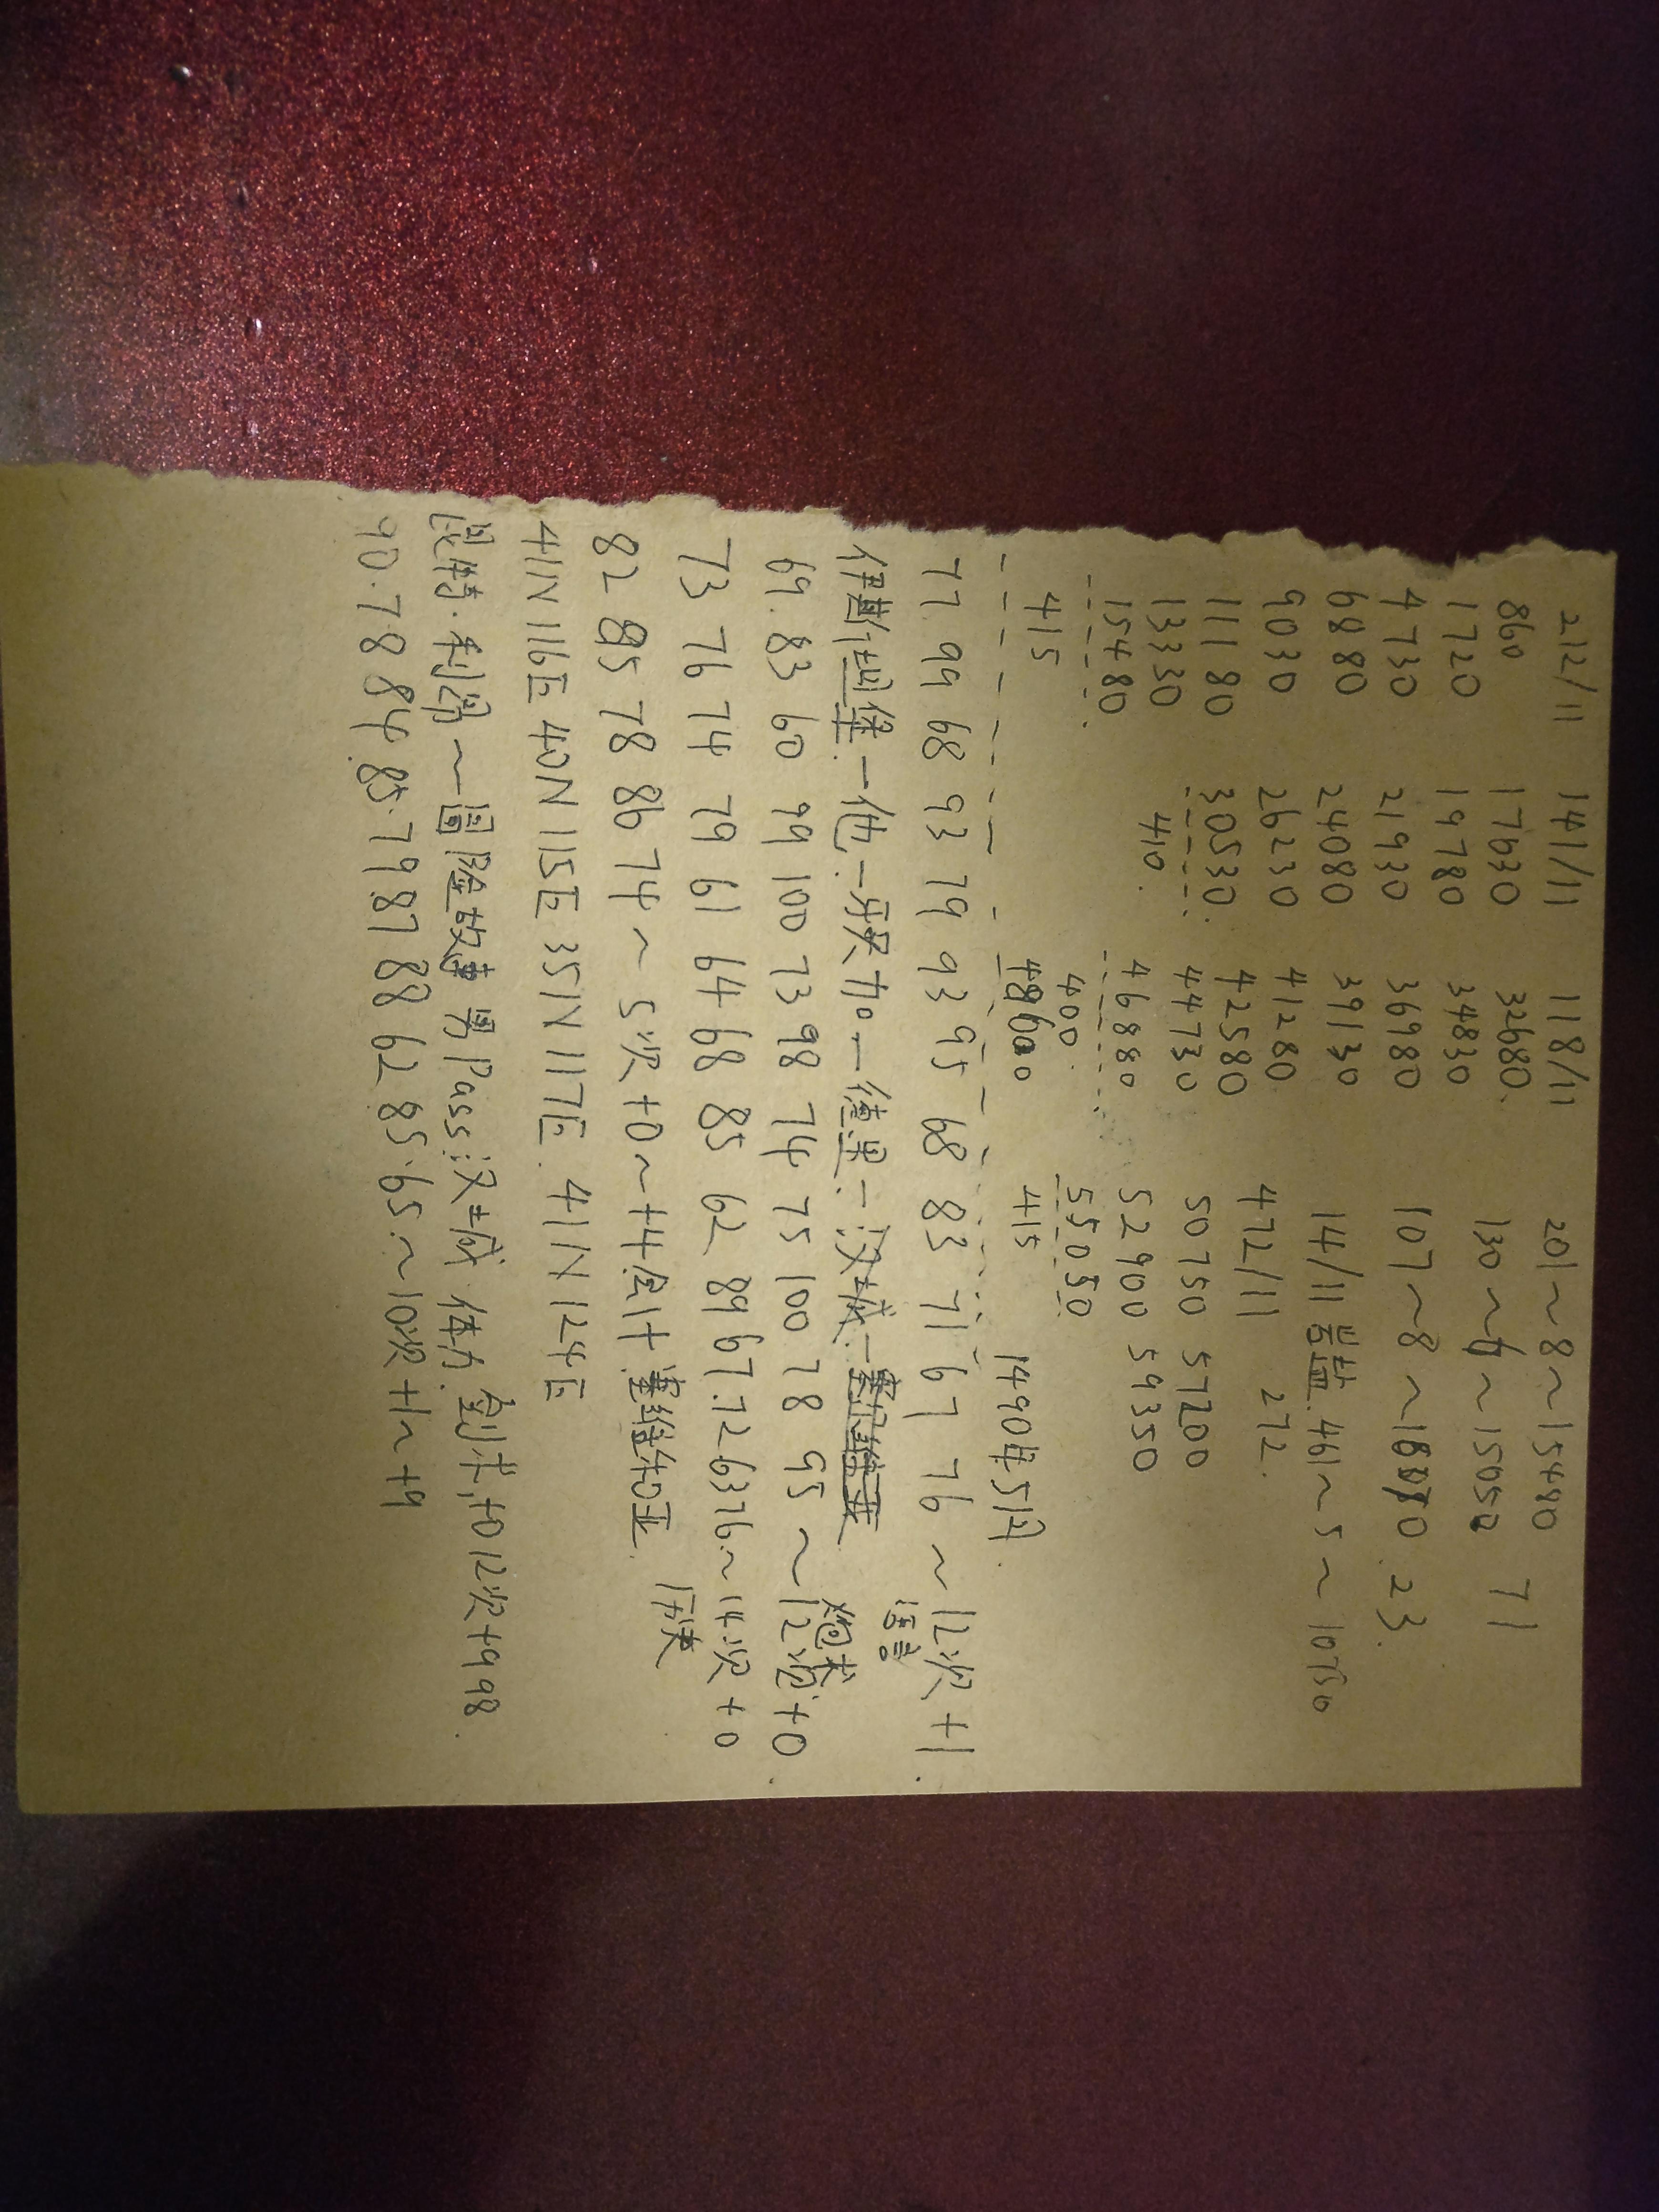 212/11 141/11 118/11 201~8~15480 71
860 17630 32680. 130~6~15050
1720 19780 34830 107~8~ 23.
4730 21930 36980 14/11 岩盐 461~5~10750
6880 24080 39130 472/11 272.
9030 26230 41280 50750 57200
11180 30530. 42580 52900 59350
13330 410. 44730 55050
15480 46880 415
415 400.
48600 1490年5月.
77 99 68 93 79 93 95 68 83 71 67 76 ~12次 +1
伊斯坦堡一他一牙买加一德里一没去城一 语言
69.83 60 99 100 73 98 74 75 100 78 95 ~12次+0 炮术
73 76 74 79 61 64 68 85 62 89 67.72 63 76~14次+0
82 85 78 86 74 ~5次+0~+4 会计 历史
41N 116E 40N 115E 35N 117E. 41N 124E
昆特.利昂~冒险故事 男 Pass:没去城 体力 剑术,+0 12次+998.
90.78 84.85.79 87 88 62 85.65~10次+1~+9